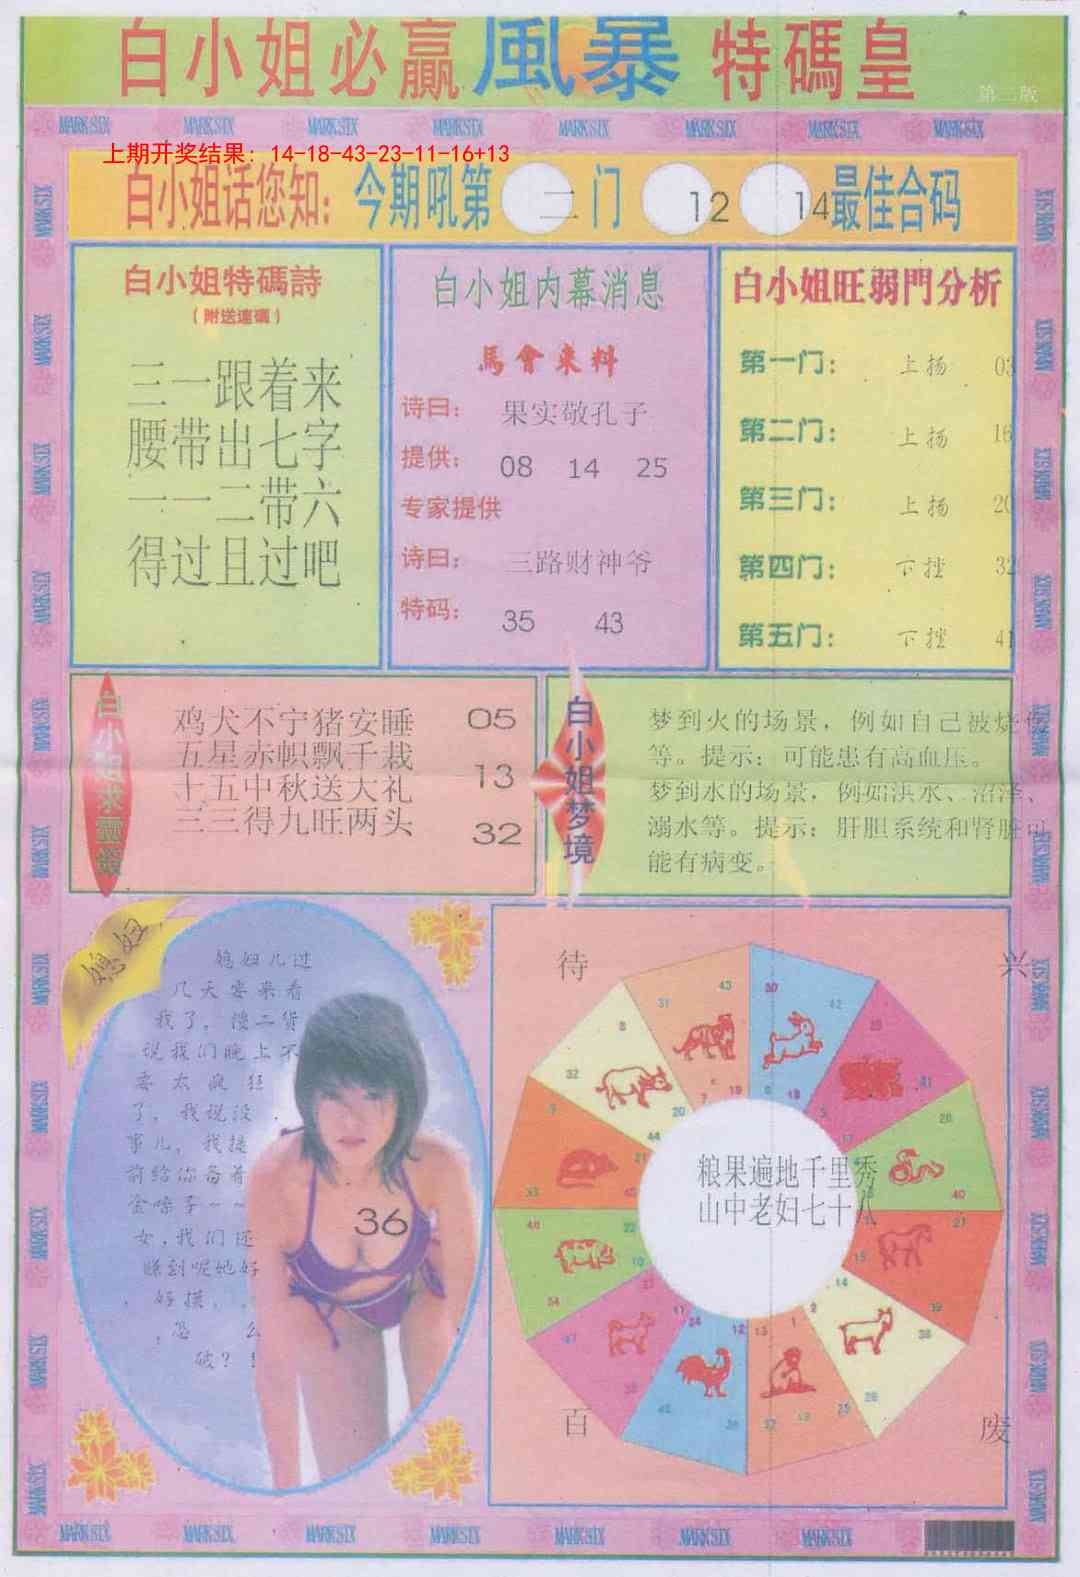 白小姐必贏風暴特碼皇
第二版
MARKSIX MARKSIX MARKSIX MARKSIX MARKSIX MARKSIX MARKSIX MARKSIX
上期开奖结果：14-18-43-23-11-16+13
白小姐话您知：今期吼第二门 12 14最佳合码
白小姐特碼詩
（附送連碼）
三一跟着来
腰带出七字
一一二带六
得过且过吧
白小姐内幕消息
馬會来料
诗曰： 果实敬孔子
提供： 08 14 25
专家提供
诗曰： 三路财神爷
特码： 35 43
白小姐旺弱門分析
第一门： 上扬 03
第二门： 上扬 16
第三门： 上扬 20
第四门： 下挫 32
第五门： 下挫 41
白小姐求靈籤
鸡犬不宁猪安睡 05
五星赤帜飘千栽
十五中秋送大礼 13
三三得九旺两头 32
白小姐梦境
梦到火的场景，例如自己被烧伤
等。提示：可能患有高血压。
梦到水的场景，例如洪水、沼泽、
溺水等。提示：肝胆系统和肾脏可
能有病变。
媳妇
媳妇儿过
几天要来看
我了，搂二货
说我们晚上不
要太疯狂
了，我说没
事儿，我提
前给你备着
金嗓子~~
女，我们还
睡到呢她好
好摸，
怎么
破？！
36
待 兴
百 废
粮果遍地千里秀
山中老妇七十八
MARKSIX MARKSIX MARKSIX MARKSIX MARKSIX MARKSIX MARKSIX